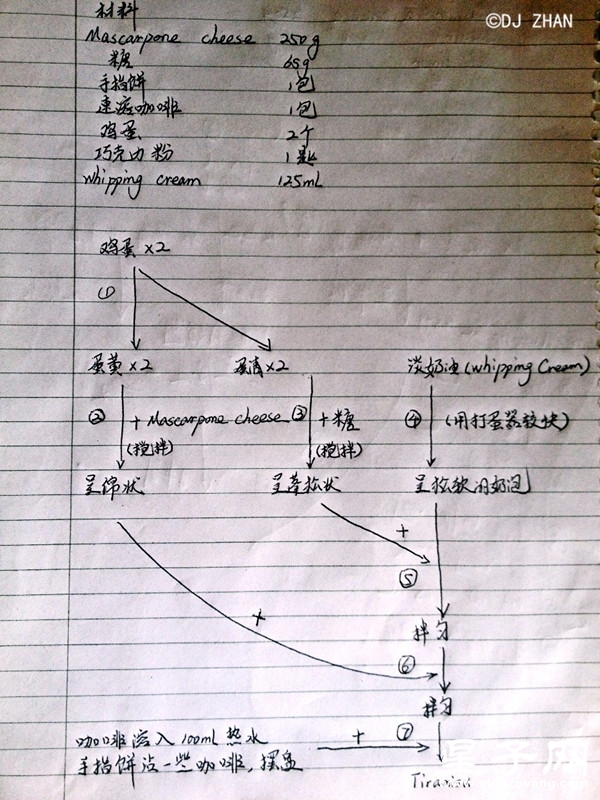 ©DJ ZHAN
材料
Mascarpone cheese 250g
糖 65g
手指饼 1包
速溶咖啡 1包
鸡蛋 2个
巧克力粉 1匙
whipping cream 125mL
鸡蛋×2
①
蛋黄×2 蛋清×2 淡奶油(whipping cream)
② + Mascarpone cheese ③ + 糖 ④ (用打蛋器较快)
(搅拌) (搅拌)
呈绵状 呈蓬松状 呈松软的奶泡
+
⑤
+
拌匀
⑥
拌匀
咖啡溶入100mL热水 + ⑦
手指饼沾一些咖啡,摆盘
Tiramisu